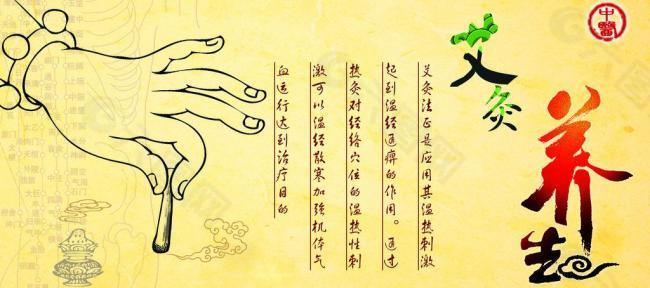 中醫
艾灸
养生
艾灸法正是应用其温热刺激
起到温经通痹的作用。通过
热灸对经络穴位的温热性刺
激可以温经散寒加强机体气
血运行达到治疗目的